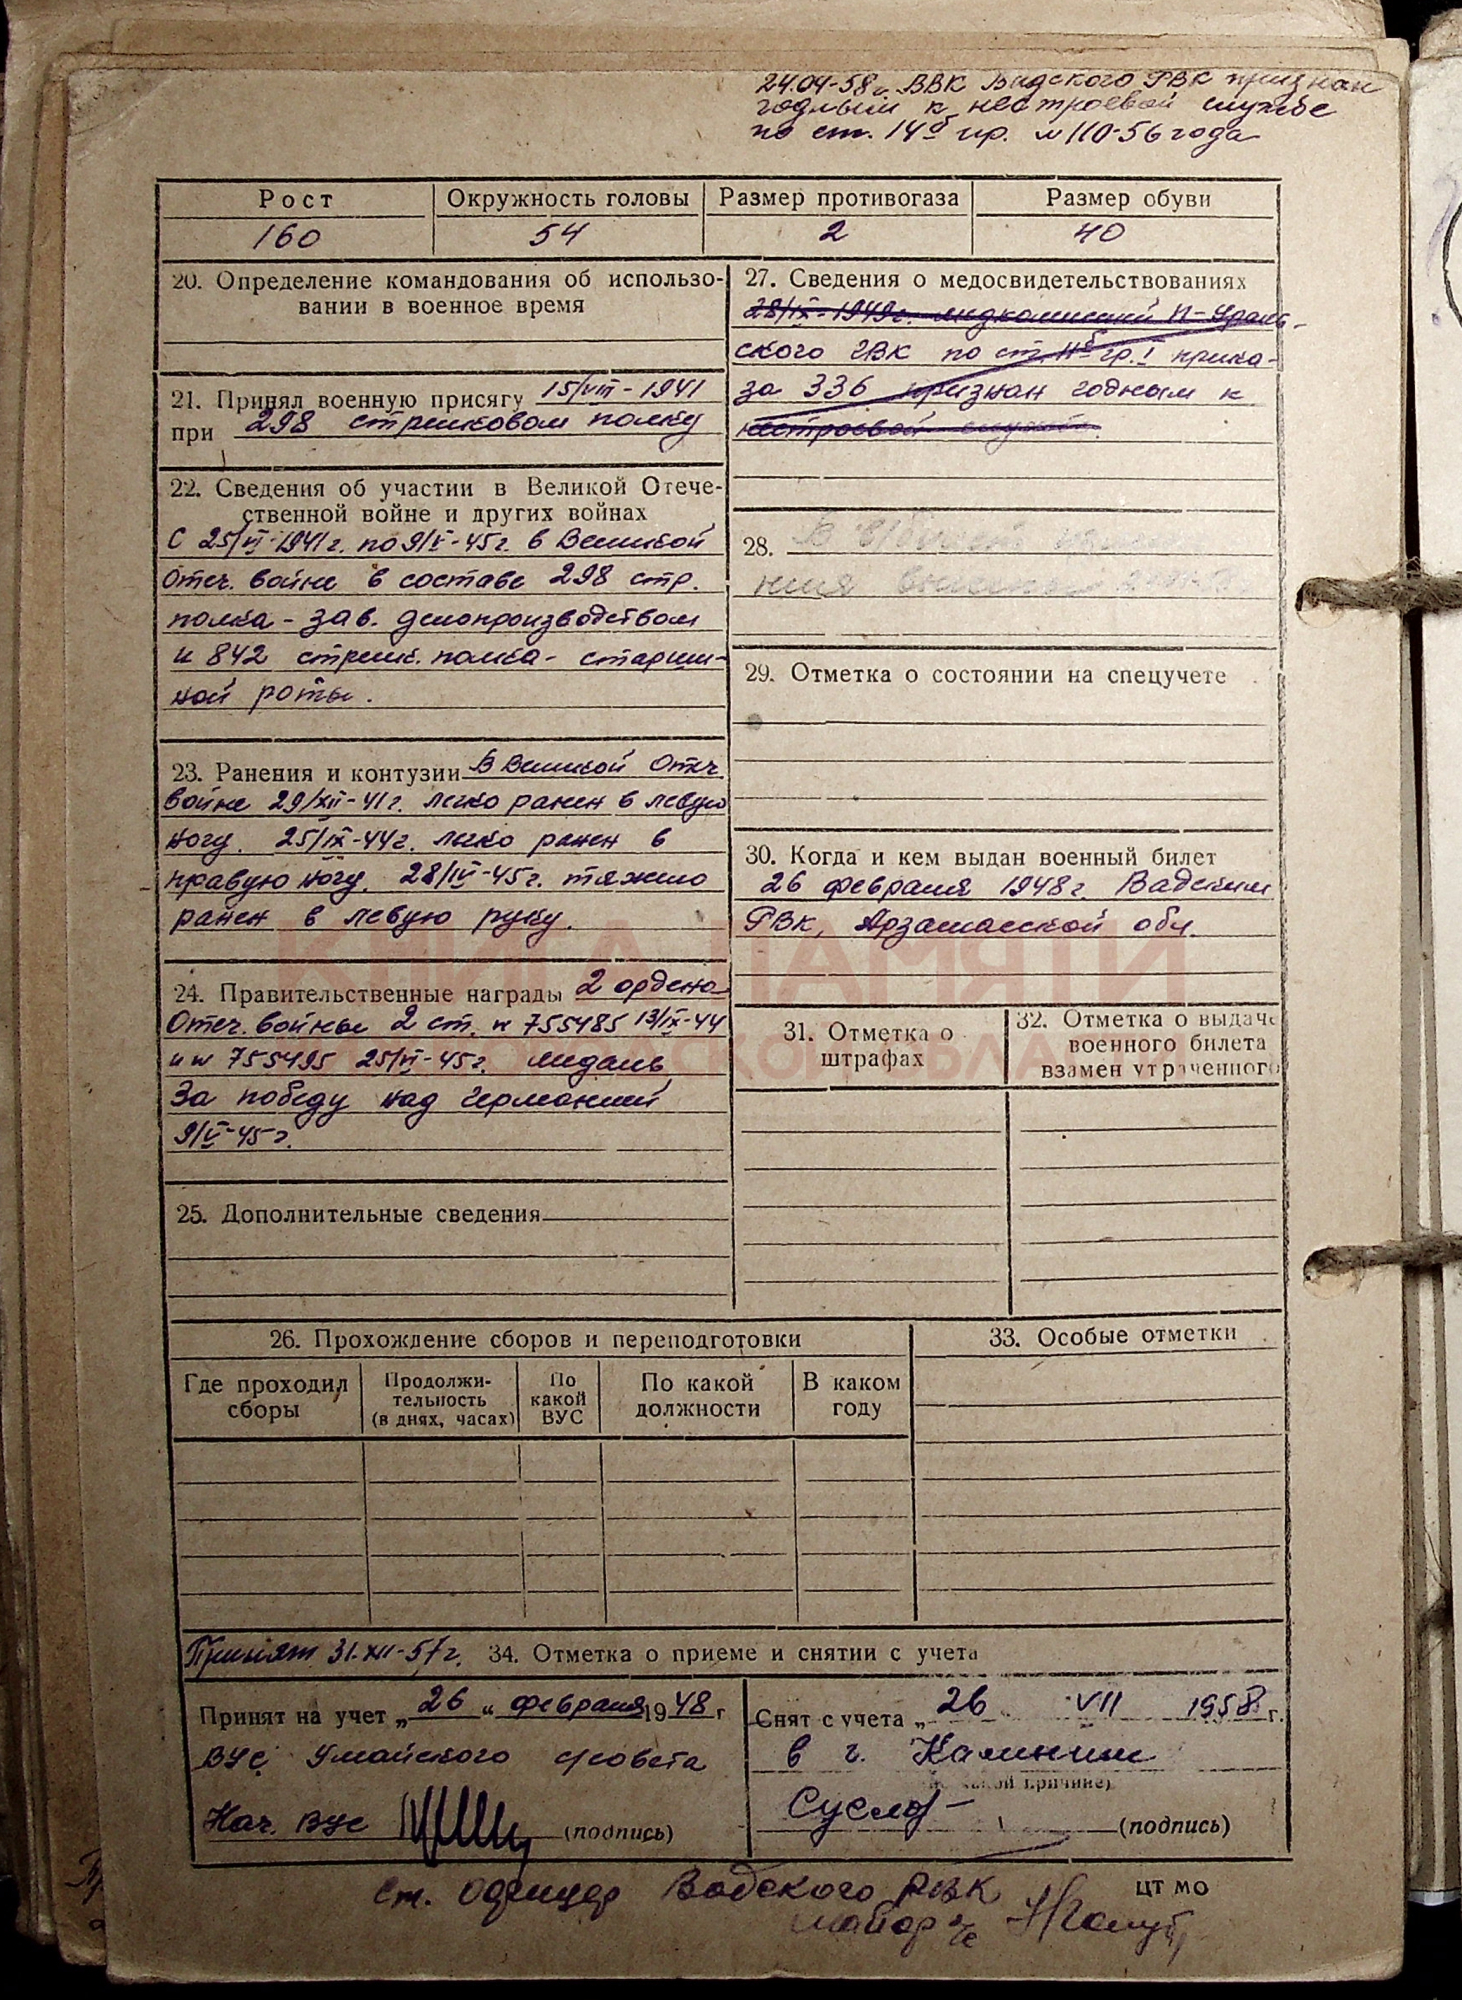 24.04-58г. ВВК Вадского РВК признан
годным к нестроевой службе
по ст. 14б пр. № 110-56 года
Рост
Окружность головы
Размер противогаза
Размер обуви
160
54
2
40
20. Определение командования об использо-
вании в военное время
21. Принял военную присягу 15/VIII-1941
при 298 стрелковом полку
22. Сведения об участии в Великой Отече-
ственной войне и других войнах
С 25/VI-1941г. по 9/V-45г. в Великой
Отеч. войне в составе 298 стр.
полка - зав. делопроизводством
и 842 стрелк. полка - старши-
ной роты.
23. Ранения и контузии В Великой Отеч.
войне 29/XII-41г. легко ранен в левую
ногу. 25/IX-44г. легко ранен в
правую ногу. 28/IV-45г. тяжело
ранен в левую руку.
24. Правительственные награды 2 ордена
Отеч. войны 2 ст. № 755485 13/IX-44
и № 755495 25/VI-45г. медаль
За победу над Германией
9/V-45г.
25. Дополнительные сведения
27. Сведения о медосвидетельствованиях
28/IX-1949г. медкомиссией
ского ГВК по ст. гр. I прика-
за 336 признан годным к
нестроевой службе.
28. В
ния
29. Отметка о состоянии на спецучете
30. Когда и кем выдан военный билет
26 февраля 1948г. Вадским
РВК, Арзамасской обл.
31. Отметка о
штрафах
32. Отметка о выдаче
военного билета
взамен утраченного
КНИГА ПАМЯТИ
26. Прохождение сборов и переподготовки
Где проходил
сборы
Продолжи-
тельность
(в днях, часах)
По
какой
ВУС
По какой
должности
В каком
году
33. Особые отметки
Принят 31.XII-57г. 34. Отметка о приеме и снятии с учета
Принят на учет „26“ февраля 1948 г
ВУС Умайского с/совета
Нач. ВУС (подпись)
Снят с учета „26 VII 1958 г.
в г. Калинин
причине)
Суслов (подпись)
Ст. офицер Вадского РВК
ЦТ МО
майор а/с